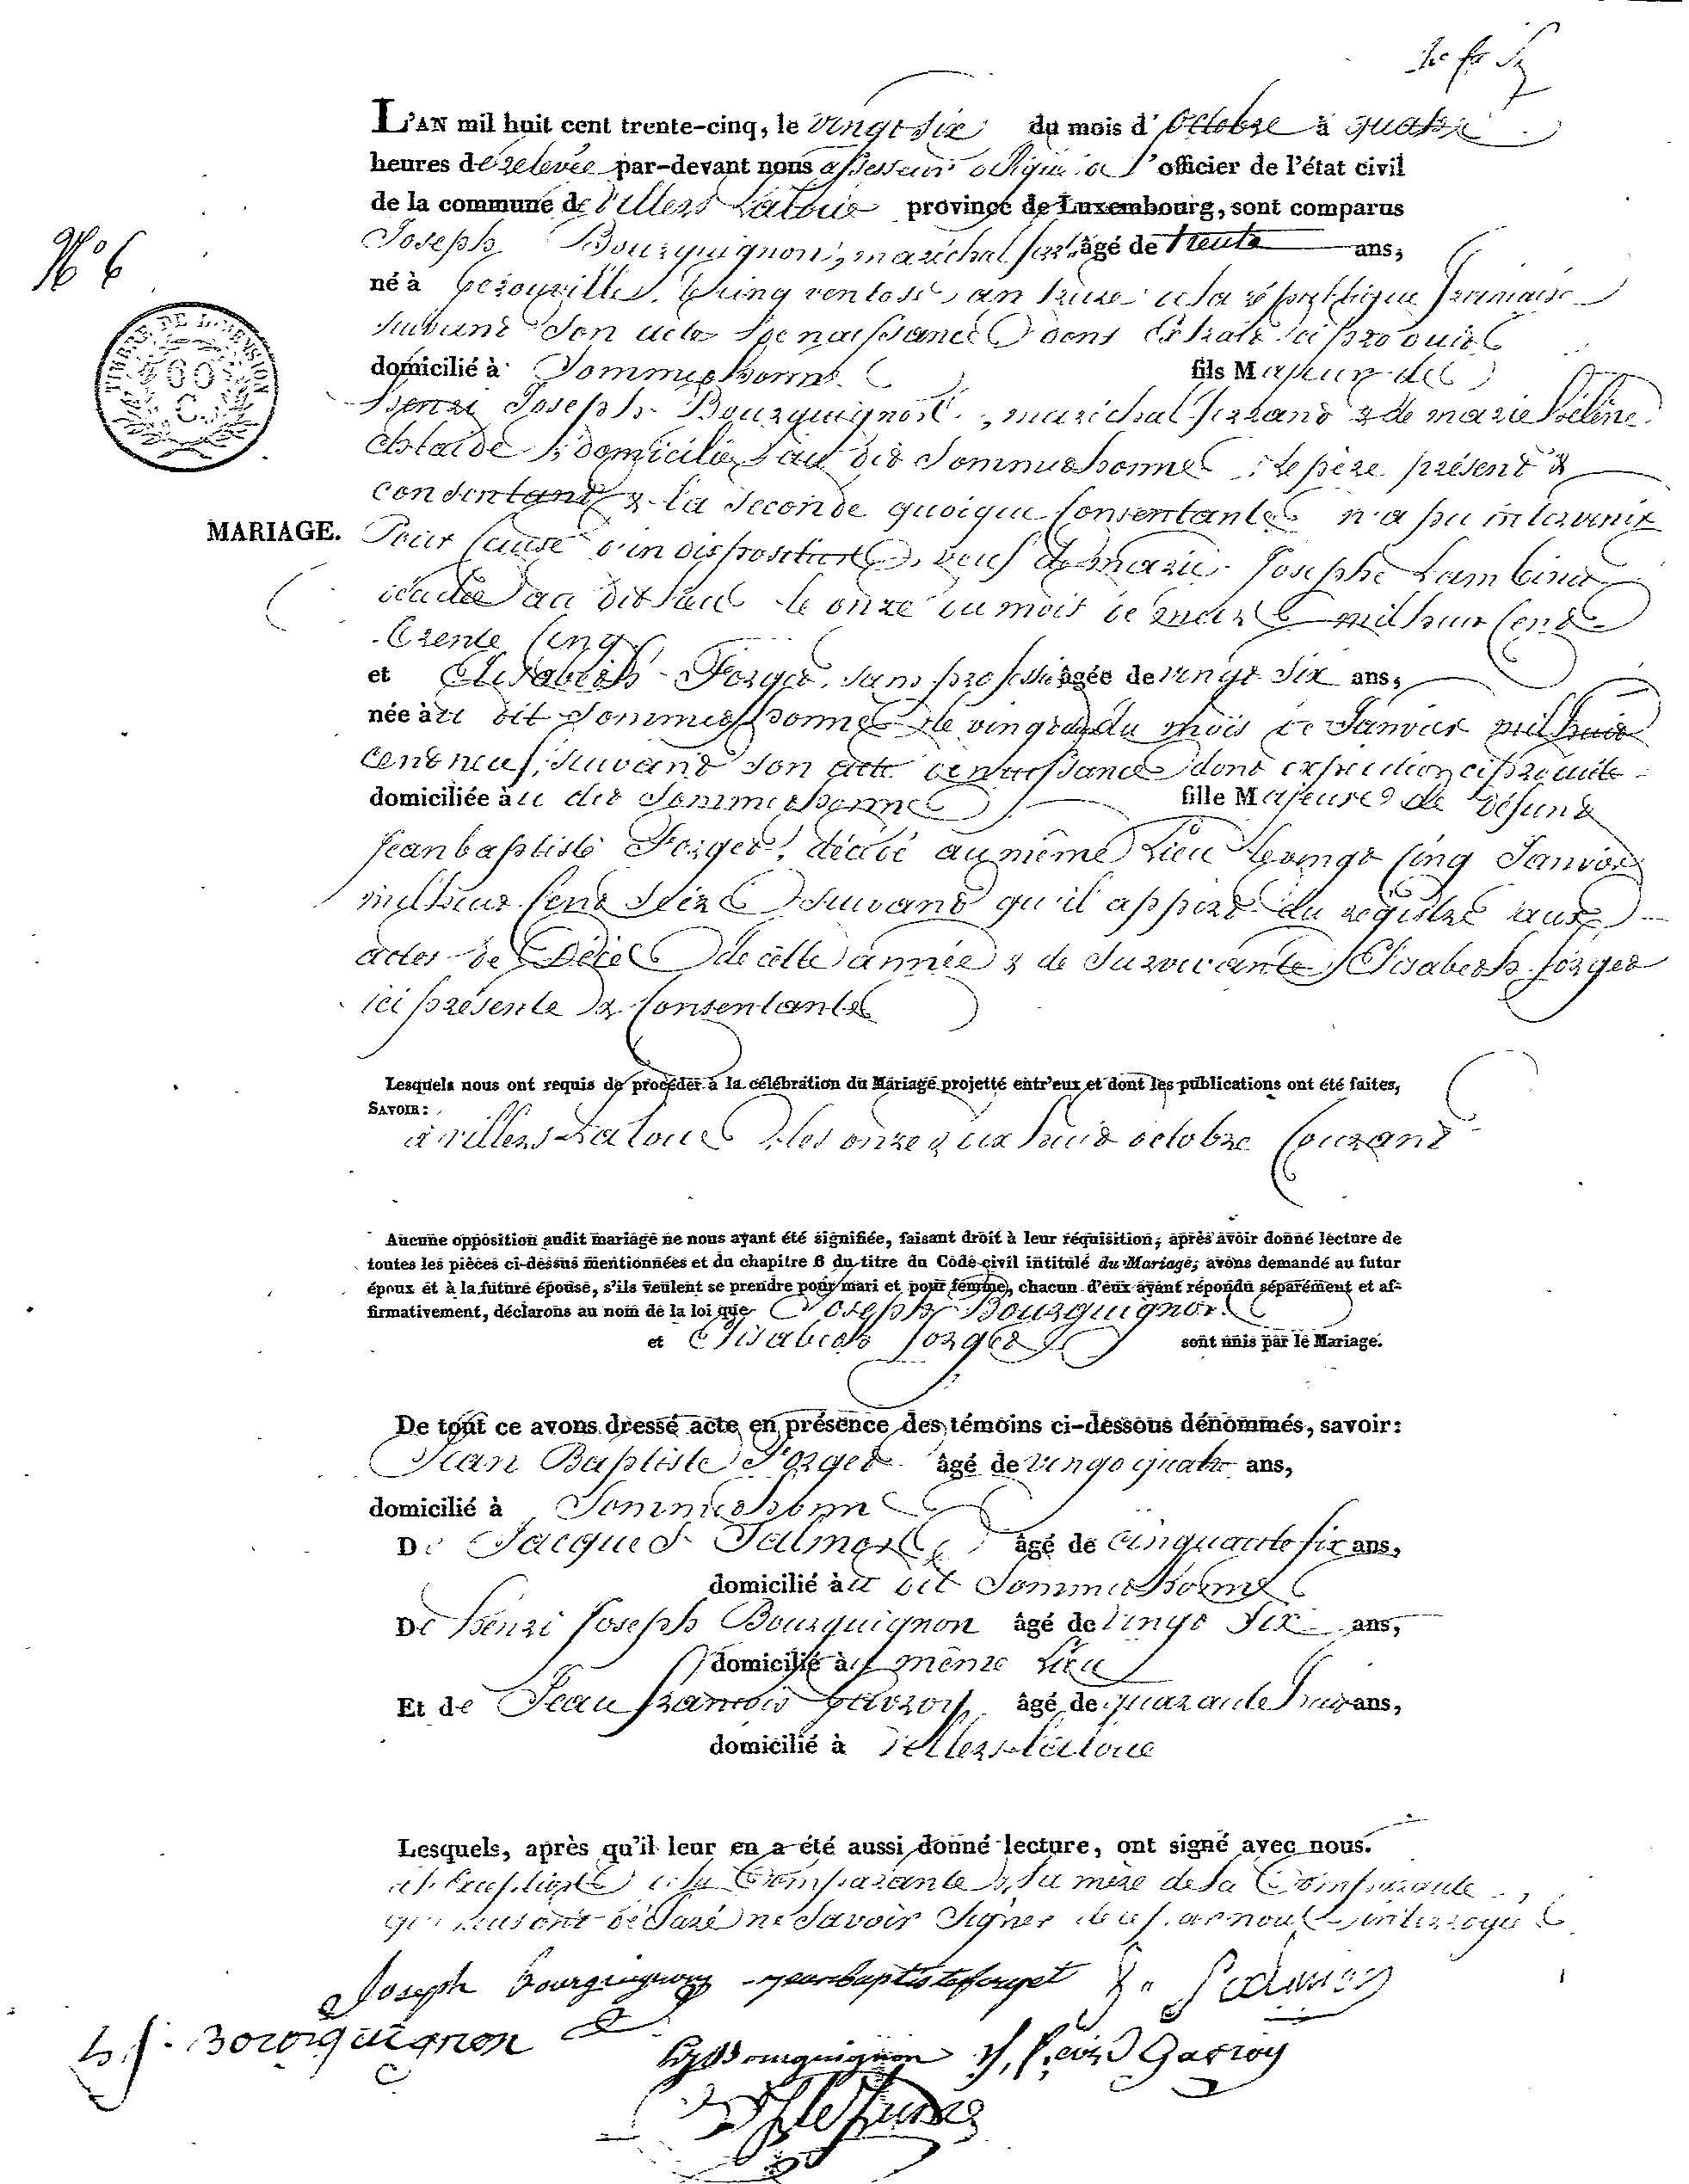 L'AN mil huit cent trente-cinq, le vingt six du mois d'octobre à quatre
heures de relevée par-devant nous assesseur l'officier de l'état civil
de la commune de Villers Latoue province de Luxembourg, sont comparus
Joseph Bourguignon, maréchal fert. âgé de trente ans,
N° 6
né à Gerouville, le cinq ventose an treize de la république française
suivant son acte de naissance dont extrait ci produit
TIMBRE DE DIMENSION
60
C.
domicilié à Sommethonne fils Majeur de
henri Joseph Bourguignon, maréchal ferrand & de marie hélène
domiciliés au dit Sommethonne, le père présent &
consentant & la seconde quoique consentante n'a pu intervenir
MARIAGE.
Pour cause d'indisposition, veuf de marie Josephe Lambinet
décédée au dit lieu le onze du mois de mars mil huit cent
trente cinq
et Elisabeth Forget, sans profession âgée de vingt six ans,
née au dit Sommethonne le vingt du mois de Janvier mil huit
cent neuf, suivant son acte de naissance dont expédition ci produite
domiciliée au dit Sommethonne fille Majeure de défunt
jean baptiste Forget, décédé au même Lieu le vingt cinq Janvier
mil huit cent seize suivant qu'il appert du registre aux
actes de Décès de cette année & de survivante Elisabeth forget
ici présente & consentante
Lesquels nous ont requis de procéder à la célébration du Mariage projetté entr'eux et dont les publications ont été faites,
SAVOIR:
à villers Latoue les onze & dix huit octobre courant
Aucune opposition audit mariage ne nous ayant été signifiée, faisant droit à leur réquisition, après avoir donné lecture de
toutes les pièces ci-dessus mentionnées et du chapitre 6 du titre du Code civil intitulé du Mariage; avons demandé au futur
époux et à la future épouse, s'ils veulent se prendre pour mari et pour femme, chacun d'eux ayant répondu séparément et af-
firmativement, déclarons au nom de la loi que Joseph Bourguignon
et Elisabeth forget sont unis par le Mariage.
De tout ce avons dressé acte en présence des témoins ci-dessous dénommés, savoir:
Jean Baptiste Forget âgé de vingt quatre ans,
domicilié à Sommethonne
De Jacques Salmon âgé de cinquante six ans,
domicilié au dit Sommethonne
De henri Joseph Bourguignon âgé de vingt six ans,
domicilié à même Lieu
Et de Jean françois gavroy âgé de quarante huit ans,
domicilié à villers latoue
Lesquels, après qu'il leur en a été aussi donné lecture, ont signé avec nous.
à l'exception de la Comparante & la mère de la Comparante
qui nous ont déclaré ne savoir signer de ce par nous interroyé
Joseph bourguignon jeanbaptiste forget J. Salmon
h J. Bourguignon hj Bourguignon Gavroy